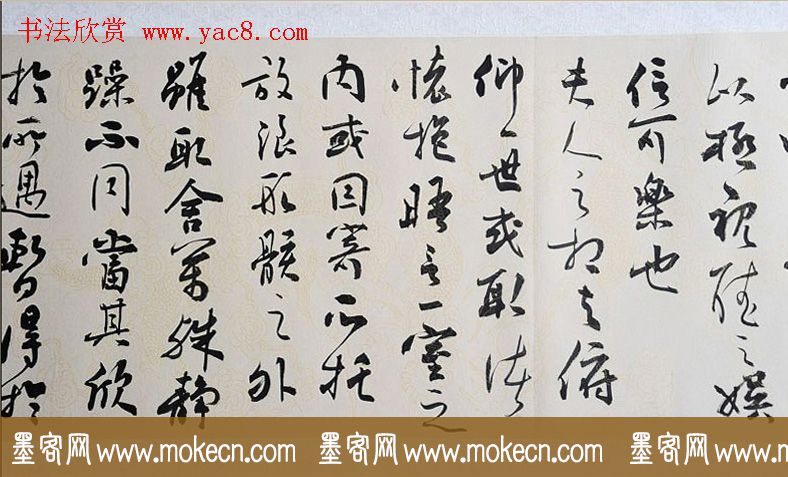 书法欣赏 www.yac8.com
以極視聽之娱
信可樂也
夫人之相与俯
仰一世或取诸
懷抱晤言一室之
内或因寄所托
放浪形骸之外
雖取舍萬殊静
躁不同當其欣
於所遇暫得於
墨客网www.mokecn.com 墨客网www.mokecn.com 墨客网www.mokecn.com